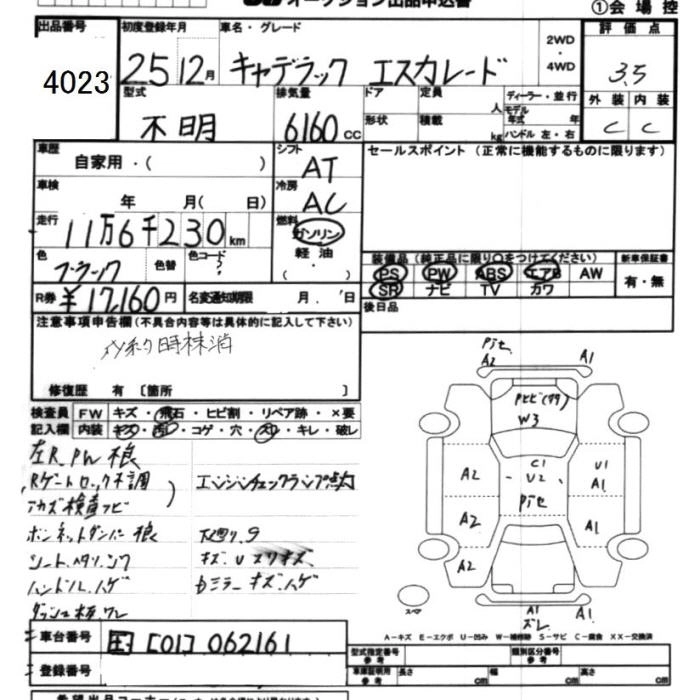 オークション出品申込書
①会場控
出品番号 4023
初度登録年月 25 12月
車名・グレード キャデラック エスカレード
2WD・4WD
評価点 3.5
外装 C 内装 C
型式 不明
排気量 6160cc
ドア 形状
定員 人
積載 kg
ディーラー・並行
モデル年式 年
ハンドル 左・右
車歴 自家用・( )
シフト AT
車検 年 月( 日)
冷房 AC
走行 11万6千230km
燃料 ガソリン 軽油・( )
色 ブラック 色替
色コード ?
R券 ¥17,160円
名変通知期限 月 日
セールスポイント(正常に機能するものに限ります)
装備品(純正品に限り○をつけてください)
PS PW ABS エアB AW
SR ナビ TV カワ
新車保証書 有・無
後日品
注意事項申告欄(不具合内容等は具体的に記入して下さい)
修復歴 有〔箇所 〕
検査員記入欄
FW キズ・飛石・ヒビ割・リペア跡・×要
内装 キズ・コゲ・穴・キレ・破レ
左R.PW 不良
Rゲートロック不調
エンジンチェックランプ点灯
ボンネットダンパー 不良
下廻り.S
ハンドル.ハゲ
ミラー キズ.ハゲ
A2 A1
W3
C1
U2
A2 U1 A1
A2 A1
A2
A1 A1
スペア
A-キズ E-エクボ U-凹み W-補修跡 S-サビ C-腐食 XX-交換済
車台番号 国[01]062161
登録番号
型式指定番号 参考
類別区分番号 参考
車庫証明用 参考 長さ cm 幅 cm 高さ cm